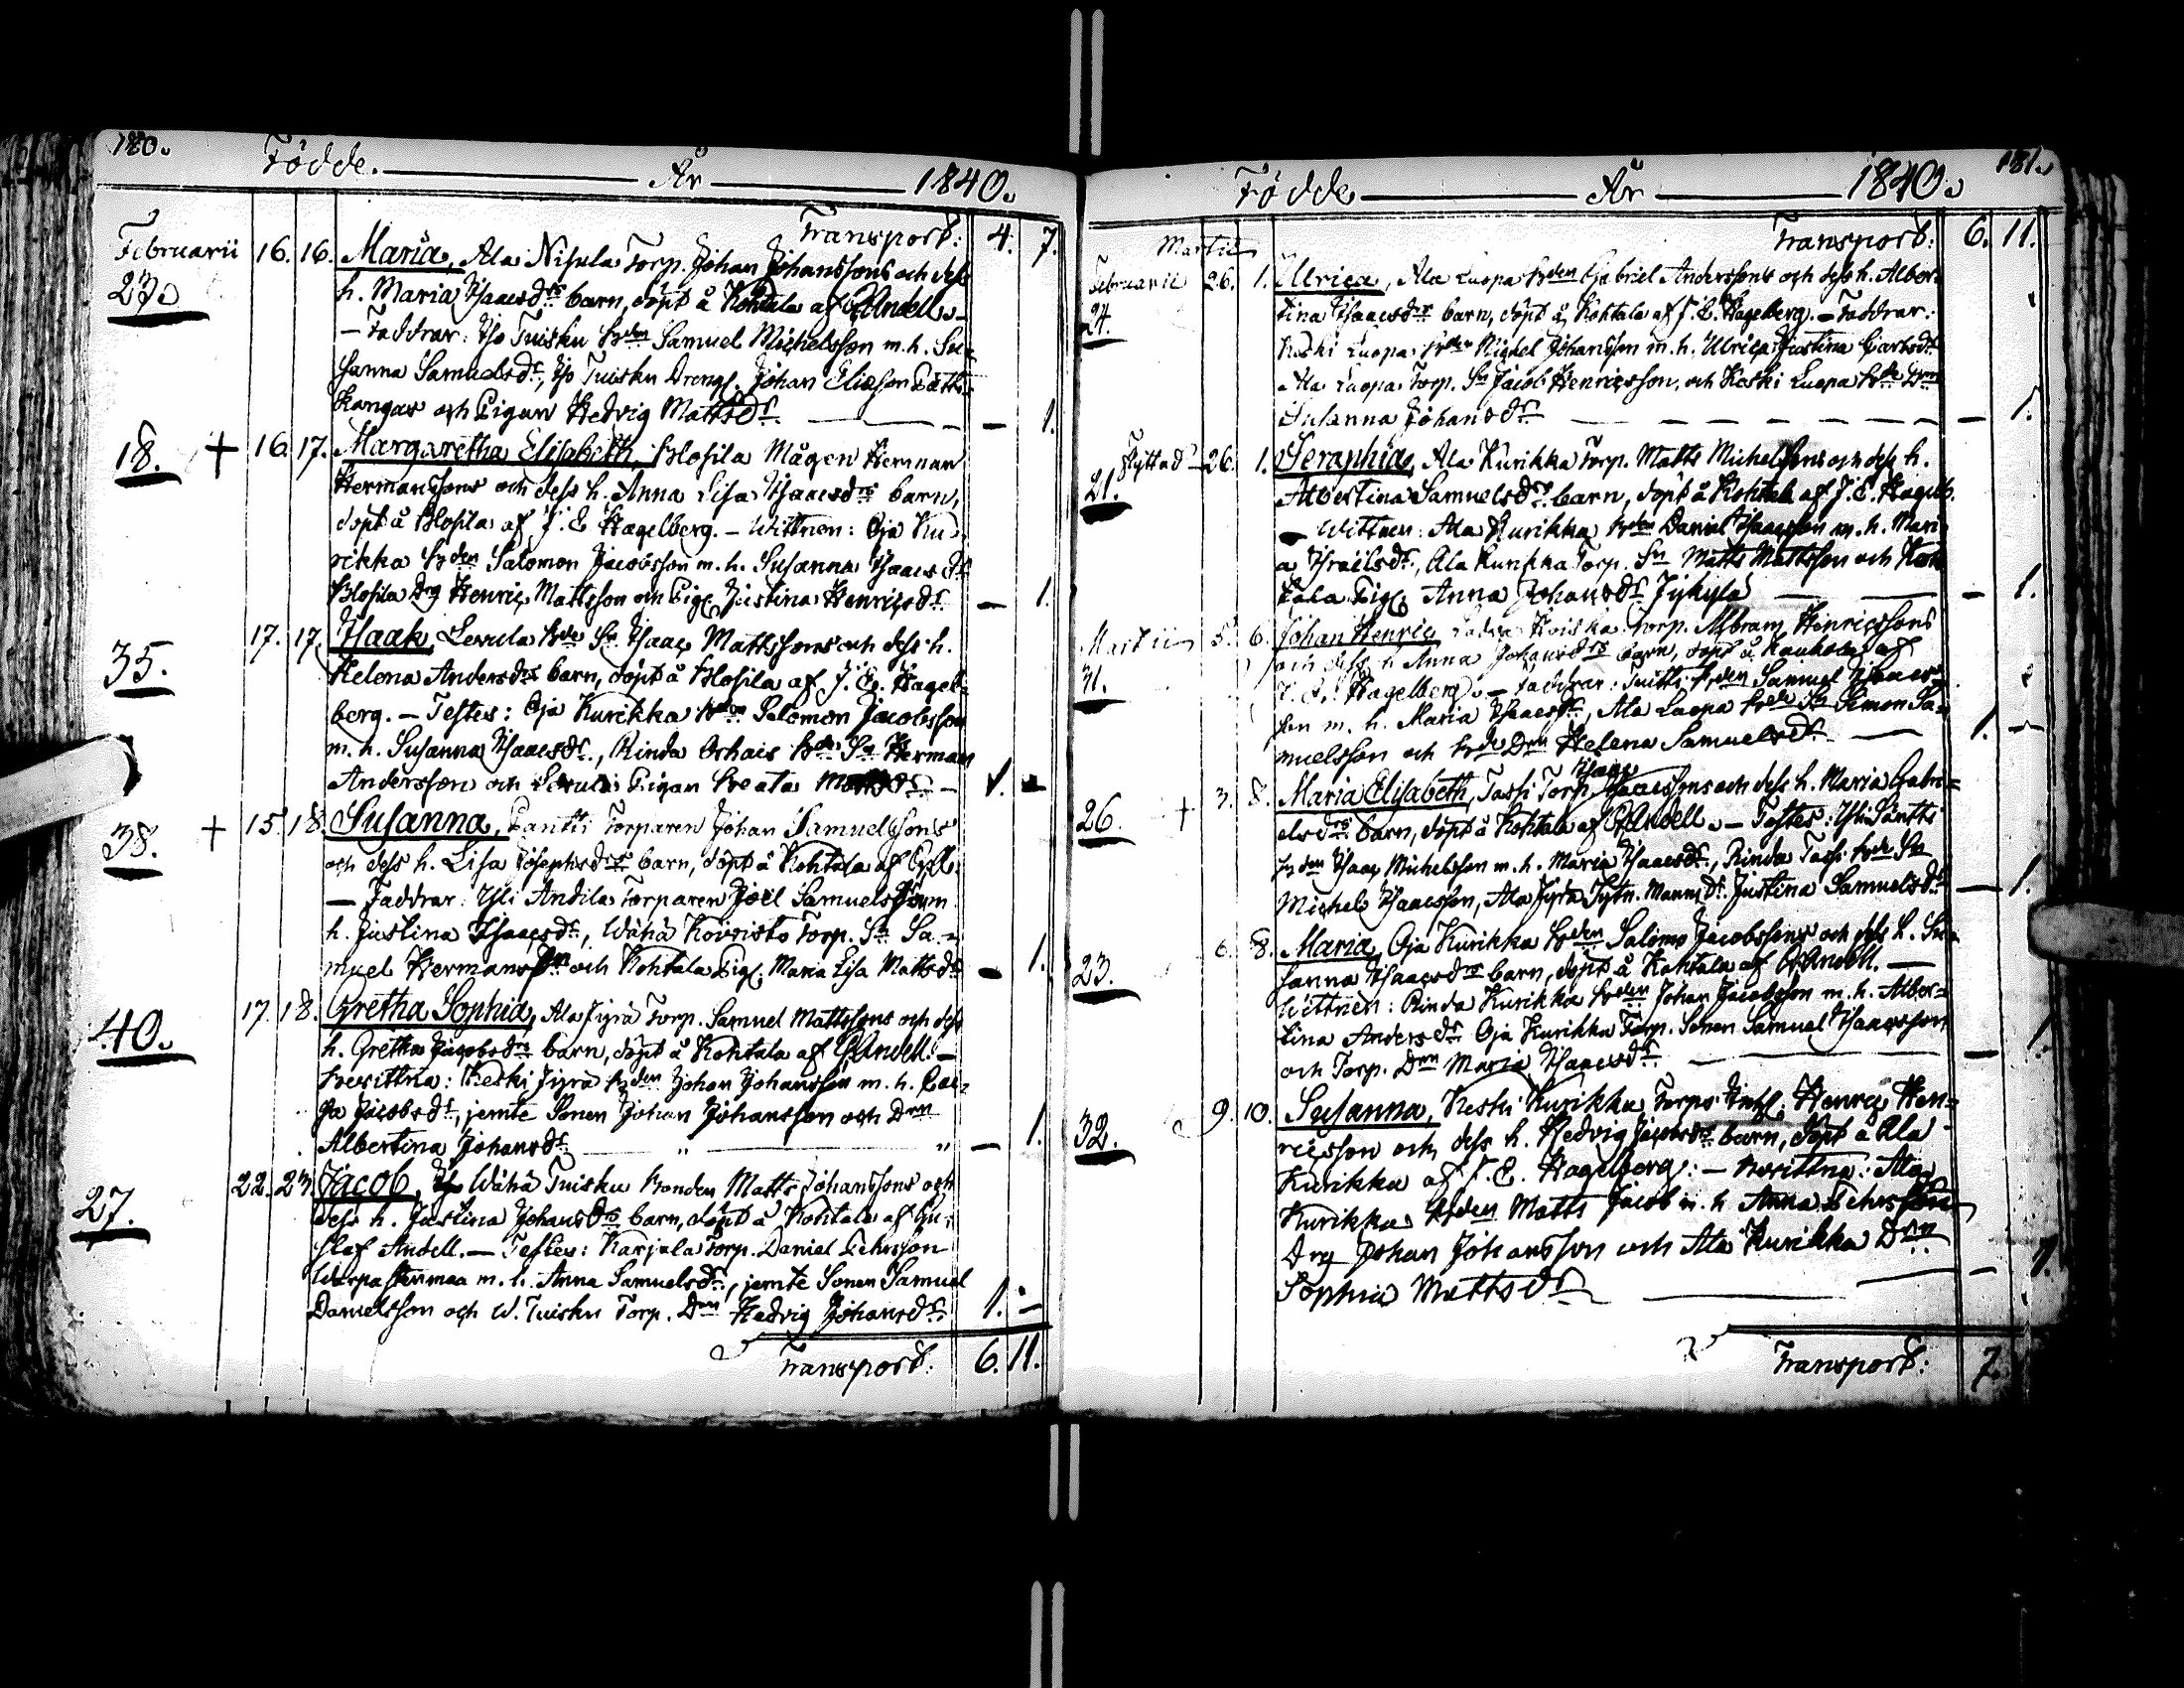 180.
Födde. År 1840.
Transport: 4. 7.
Februarii 16. 16. Maria, Ala Nisula Torp. Johan Johanssons och dess
23. h. Maria Isaacsdrs barn, döpt å Kohtala af GAndell.
— Faddrar: Iso Tuisku Bden Samuel Michelsson m. h. Su=
sanna Samuelsdr, Iso Tuisku Drengs. Johan Eliæson
Kangas och Pigan Hedvig Mattsdr — 1.
18. + 16. 17. Margaretha Elisabeth, Blosila Mågen Herman
Hermanssons och dess h. Anna Lisa Isaacsdrs barn,
döpt å Blosila af J. E Hagelberg. — Wittnen: Oja Ku=
rikka Bden Salomon Jacobsson m. h. Susanna Isaacsdr
Blosila Drg Henric Mattsson och Pig. Justina Henricsdr — 1.
35. 17. 17. Isaak, Levula Bde Sn Isaac Mattssons och dess h.
Helena Andersdrs barn, döpt å Blosila af J. E. Hagel=
berg. — Testes: Oja Kurikka Bden Salomon Jacobsson
m. h. Susanna Isaacsdr, Rinda Orhais Bde Sn Herman
Andersson och Levula Pigan Beata Mattsdr — 1. —
38. + 15. 18. Susanna, Pantti Torparen Johan Samuelssons
och dess h. Lisa Josephsdrs barn, döpt å Kohtala af
— Faddrar: Yli Andila Torparen Joël Samuelsson m.
h. Justina Isaacsdr, Wähä Koivisto Torp. Sn Sa=
muel Hermansson och Kohtala Pig. Maria Lisa Mattsdr — 1.
40. 17. 18. Gretha Sophia, Ala Jyrä Torp. Samuel Mattssons och dess
h. Gretha Jacobsdrs barn, döpt å Kohtala af GAndell. —
Bevittna: Keski Jyrä Bden Johan Johansson m. h. Cai=
sa Jacobsdr, jemte Sonen Johan Johansson och Drn
Albertina Johansdr " " — 1.
27. 22. 23. Jacob, Wähä Tuisku Bonden Matts Johanssons och
dess h. Justina Johansdrs barn, döpt å Kohtala af Gu=
staf Andell. — Testes: Karjula Torp. Daniel
Warpastenmaa m. h. Anna Samuelsdr, jemte Sonen Samuel
Danielsson och W. Tuisku Torp. Drn Hedvig Johansdr 1. —
Transport: 6. 11.
181.
Födde År 1840.
Martii Transport: 6. 11.
Februarii 26. 1. Ulrica, Ala Luopa Bden Gabriel Anderssons och dess h. Alber=
24. tina Isaacsdrs barn, döpt å Kohtala af J. E. Hagelberg. — Faddrar:
Keski Luopa Bden Michel Johansson m. h. Ulrica Justina Carlsdr
Ala Luopa Torp. Sn Jacob Henricsson, och Keski Luopa Bde Drn
Susanna Johansdr — 1.
Flyttad 26. 1. Seraphia, Ala Kurikka Torp. Matts Michelssons och dess h.
21. Albertina Samuelsdrs barn, döpt å Kohtala af J. E. Hagelb.
— Wittnen: Ala Kurikka Bden Daniel Isaacsson m. h. Mari=
a Israëlsdr, Ala Kurikka Torp. Sn Matts Mattsson och Koh
tala Pig. Anna Johansdr Jyhylä — 1.
Martii 5. 6. Johan Henric Torp. Abram Henricssons
31. och dess h Anna Johansdrs barn, döpt å Kauhola af
J. E. Hagelberg. — Faddrar: Tuitti Bden Samuel Isaacs=
son m. h. Maria Isaacsdr, Ala Luopa Bde Sn Simon Sa=
muelsson och Bde Drn Helena Samuelsdr 1. —
Isaac
26. + 3. 8. Maria Elisabeth, Tassi Torp. Isaacssons och dess h. Maria Gabri=
elsdrs barn, döpt å Kohtala af GAndell. — Testes: Yli Säntti
Bden Isaac Michelsson m. h. Maria Isaacsdr, Rinda Tassi Bde Sn
Michel Isaacsson, Ala Jyrä Sytn. Manns Dr Justina Samuelsdr — 1.
23. 6. 8. Maria, Oja Kurikka Bden Salomo Jacobssons och dess h. Su=
sanna Isaacsdrs barn, döpt å Kohtala af GAndell. —
Wittnen: Rinda Kurikka Bden Johan Jacobsson m. h. Alber=
tina Andersdr Oja Kurikka Torp. Sonen Samuel Isaacsson
och Torp. Drn Maria Isaacsdr — 1.
32. 9. 10. Susanna, Keski Kurikka Torps Henric Hen=
ricsson och dess h. Hedvig Jacobsdrs barn, döpt å Ala
Kurikka af J. E. Hagelberg. — Bevittna: Ala
Kurikka Bden Matts Jacobs. m. h Anna
Drg Johan Johansson och Ala Kurikka Drn
Sophia Mattsdr — 1.
Transport: 7.